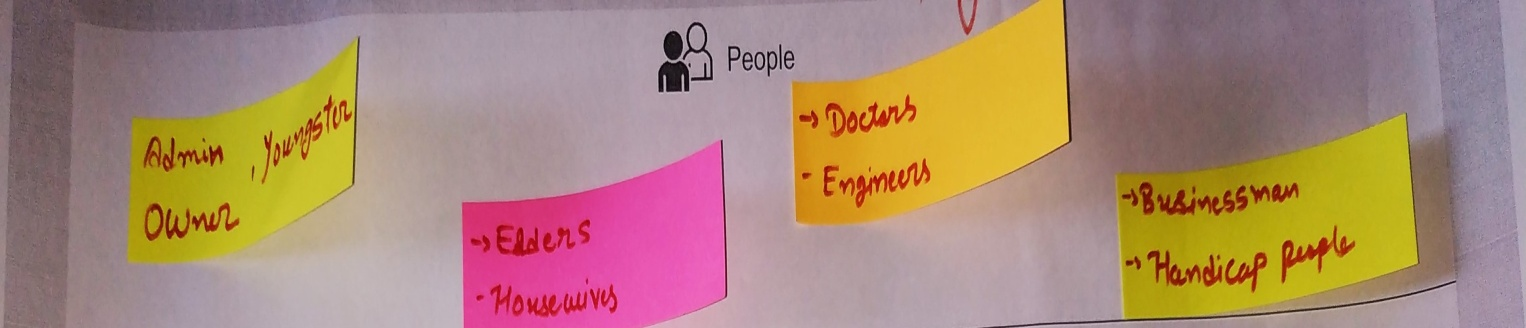 People
Admin , Youngster
Owner
→ Elders
- Housewives
→ Doctors
- Engineers
→ Businessman
→ Handicap people